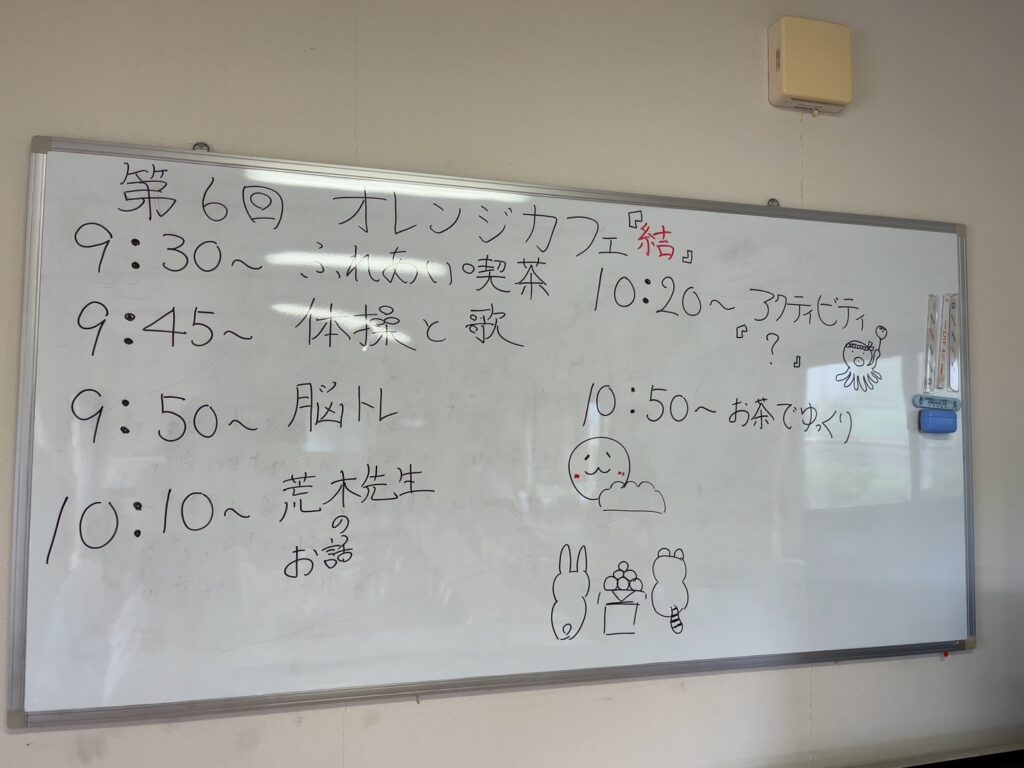 第6回 オレンジカフェ『結』
9:30～ ふれあい喫茶
9:45～ 体操と歌
9:50～ 脳トレ
10:10～ 荒木先生
の
お話
10:20～ アクティビティ
『 ? 』
10:50～ お茶でゆっくり